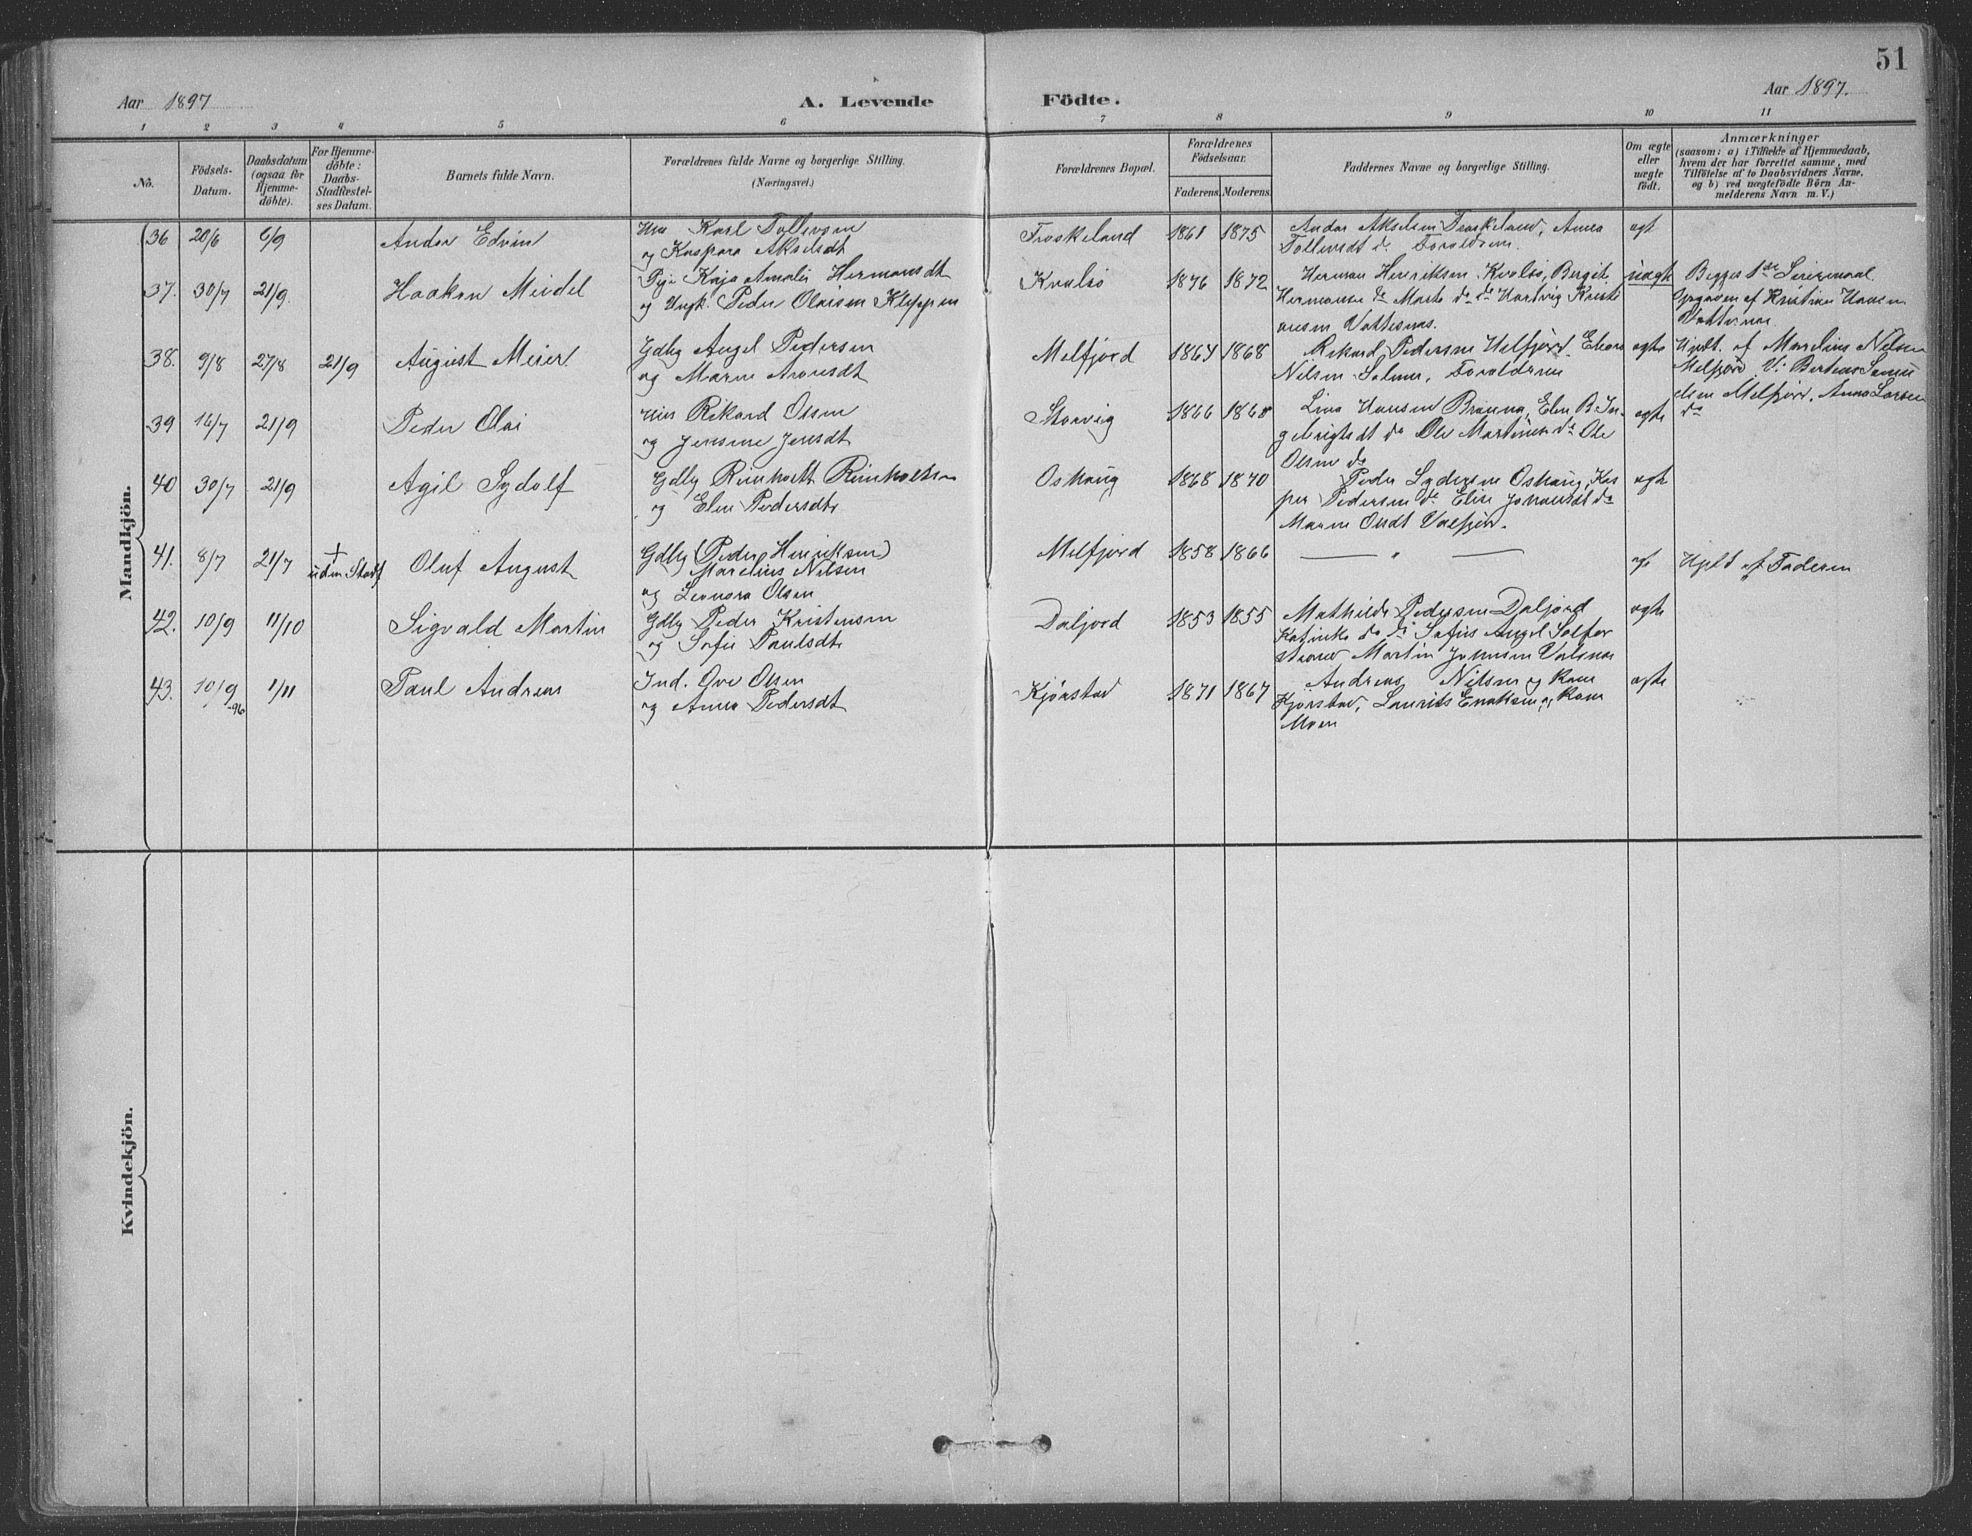 51
Aar 1897
A. Levende Födte.
Aar 1897.
1 2 3 4 5 6 7 8 9 10 11
No.
Födsels-Datum.
Daabsdatum (ogsaa for Hjemme-döbte).
For Hjemme-döbte: Daabs-Stadfæstel-ses Datum.
Barnets fulde Navn.
Forældrenes fulde Navne og borgerlige Stilling.
(Næringsvei.)
Forældrenes Bopæl.
Forældrenes Födselsaar.
Faderens. Moderens.
Faddernes Navne og borgerlige Stilling.
Om ægte eller uægte födt.
Anmærkninger
(saasom: a) i Tilfælde af Hjemmedaab,
hvem der har forrettet samme, med
Tilföielse af to Daabsvidners Navne,
og b) ved uægtefödte Börn An-
melderens Navn m. V.)
Mandkjön.
36 20/6 6/9 Andor Edvin
Karl Tollevsen
og Kaspara Akselsdt
Froskeland 1861 1875
Andor Akselsen Froskeland, Anna
Tollevsdt do Foroldrene.
ægt
37. 30/7 21/9. Haakon Meidel
Pige Kaja Amalie Hermansdt
og Ungk. Peder Olaisen Kleppen
Kvalsø 1876 1872
Herman Henriksen Kvalsø, Bergit
Hermansen do Marte do do Hartvig Kristi
ansen Vottesnes.
uægte
Begges 1ste Leiermaal
Opgaven af Kristian Hansen
38. 9/8 27/8 21/9 August Meier
Gdbg Angel Pedersen
og Maren Aronsdt
Melfjord 1864 1868
Rikard Pedersen Melfjord
Nilsen Foroldrene
ægte
Hjdt. af Marelius Nilsen
Melfjord V:
Melfjord, Anna Larsen
do
39 16/7 21/9 Peder Olai
Rikard Olsen
og Jensine Jensdt
Storvig 1866 1868
Lina Hansen Elen B. In-
gebrigtsdt do Ole Martinsen do Ole
Olsen do
ægte
40 30/7 21/9 Agil Sydolf
Gdbg Reinholdt Reinholtsen
og Elen Pedersdt
Oshaug 1868 1870
Peder Sydersen Oshaug, Kas
per Pedersen do Elise Johansdt do
Maren
ægte
41. 8/7 21/7 + uden Stadf Oluf August
Gdbg (Peder Henriksen)
Marelius Nilsen
og Leonora Olsen
Melfjord 1858 1866
— " —
Hjdt af Faderen
42. 10/9 11/10 Sigvald Martin
Gdbg Peder Kristensen
og Sofie Paulsdt
Daljord 1853 1855
Mathilde Pedersen Daljord
Katinka do do Sofus Angel
Martin Johnsen Valsnes
ægte
43. 10/9 -96 1/11 Paul Andreas
Ind. Ove Olsen
og Anna Pedersdt
Kjørstad 1871 1867
Andreas Nilsen og Kone
Kjørstad, Laurits Enoksen og Kone
Moen
ægte
Kvindekjön.